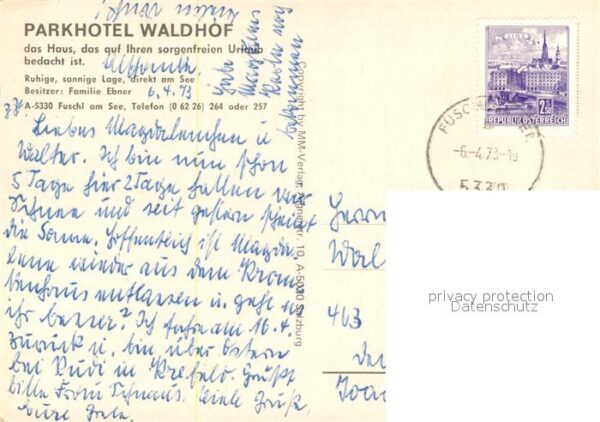 PARKHOTEL WALDHOF
das Haus, das auf Ihren sorgenfreien Urlaub
bedacht ist.
Ruhige, sonnige Lage, direkt am See
Besitzer: Familie Ebner
6.4.73
A-5330 Fuschl am See, Telefon (0 62 26) 264 oder 257
Liebes Magdalenchen u
Walter. Ich bin nun schon
5 Tage hier 2 Tage hatten wir
Schnee und seit gestern scheint
die Sonne. Hoffentlich ist Magda-
lene wieder aus dem Kran-
kenhaus entlassen u. geht es
ihr besser? Ich fahre am 16.4.
zurück u. bin über Ostern
bei Rudi in Krefeld. Grüßt
bitte Frau Schnaus. Viele Grüße
Eure Grete.
Habe
Magdalenes
Karte noch
bekommen
Copyright by MM-Verlag, 10, A-5020 Salzburg
2.50
REPUBLIK ÖSTERREICH
FUSCHL AM SEE
-6.-4.73-19
5330
Herrn
Wal
463
privacy protection
Datenschutz